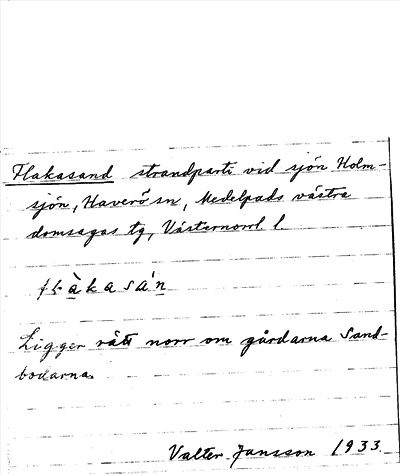 Flakasand strandparti vid sjön Holm-
sjön, Haverö sn, Medelpads västra
domsagas tg, Västernorrl l.
flàkasán
Ligger rätt norr om gårdarna Sand-
bodarna.
Valter Jansson 1933.